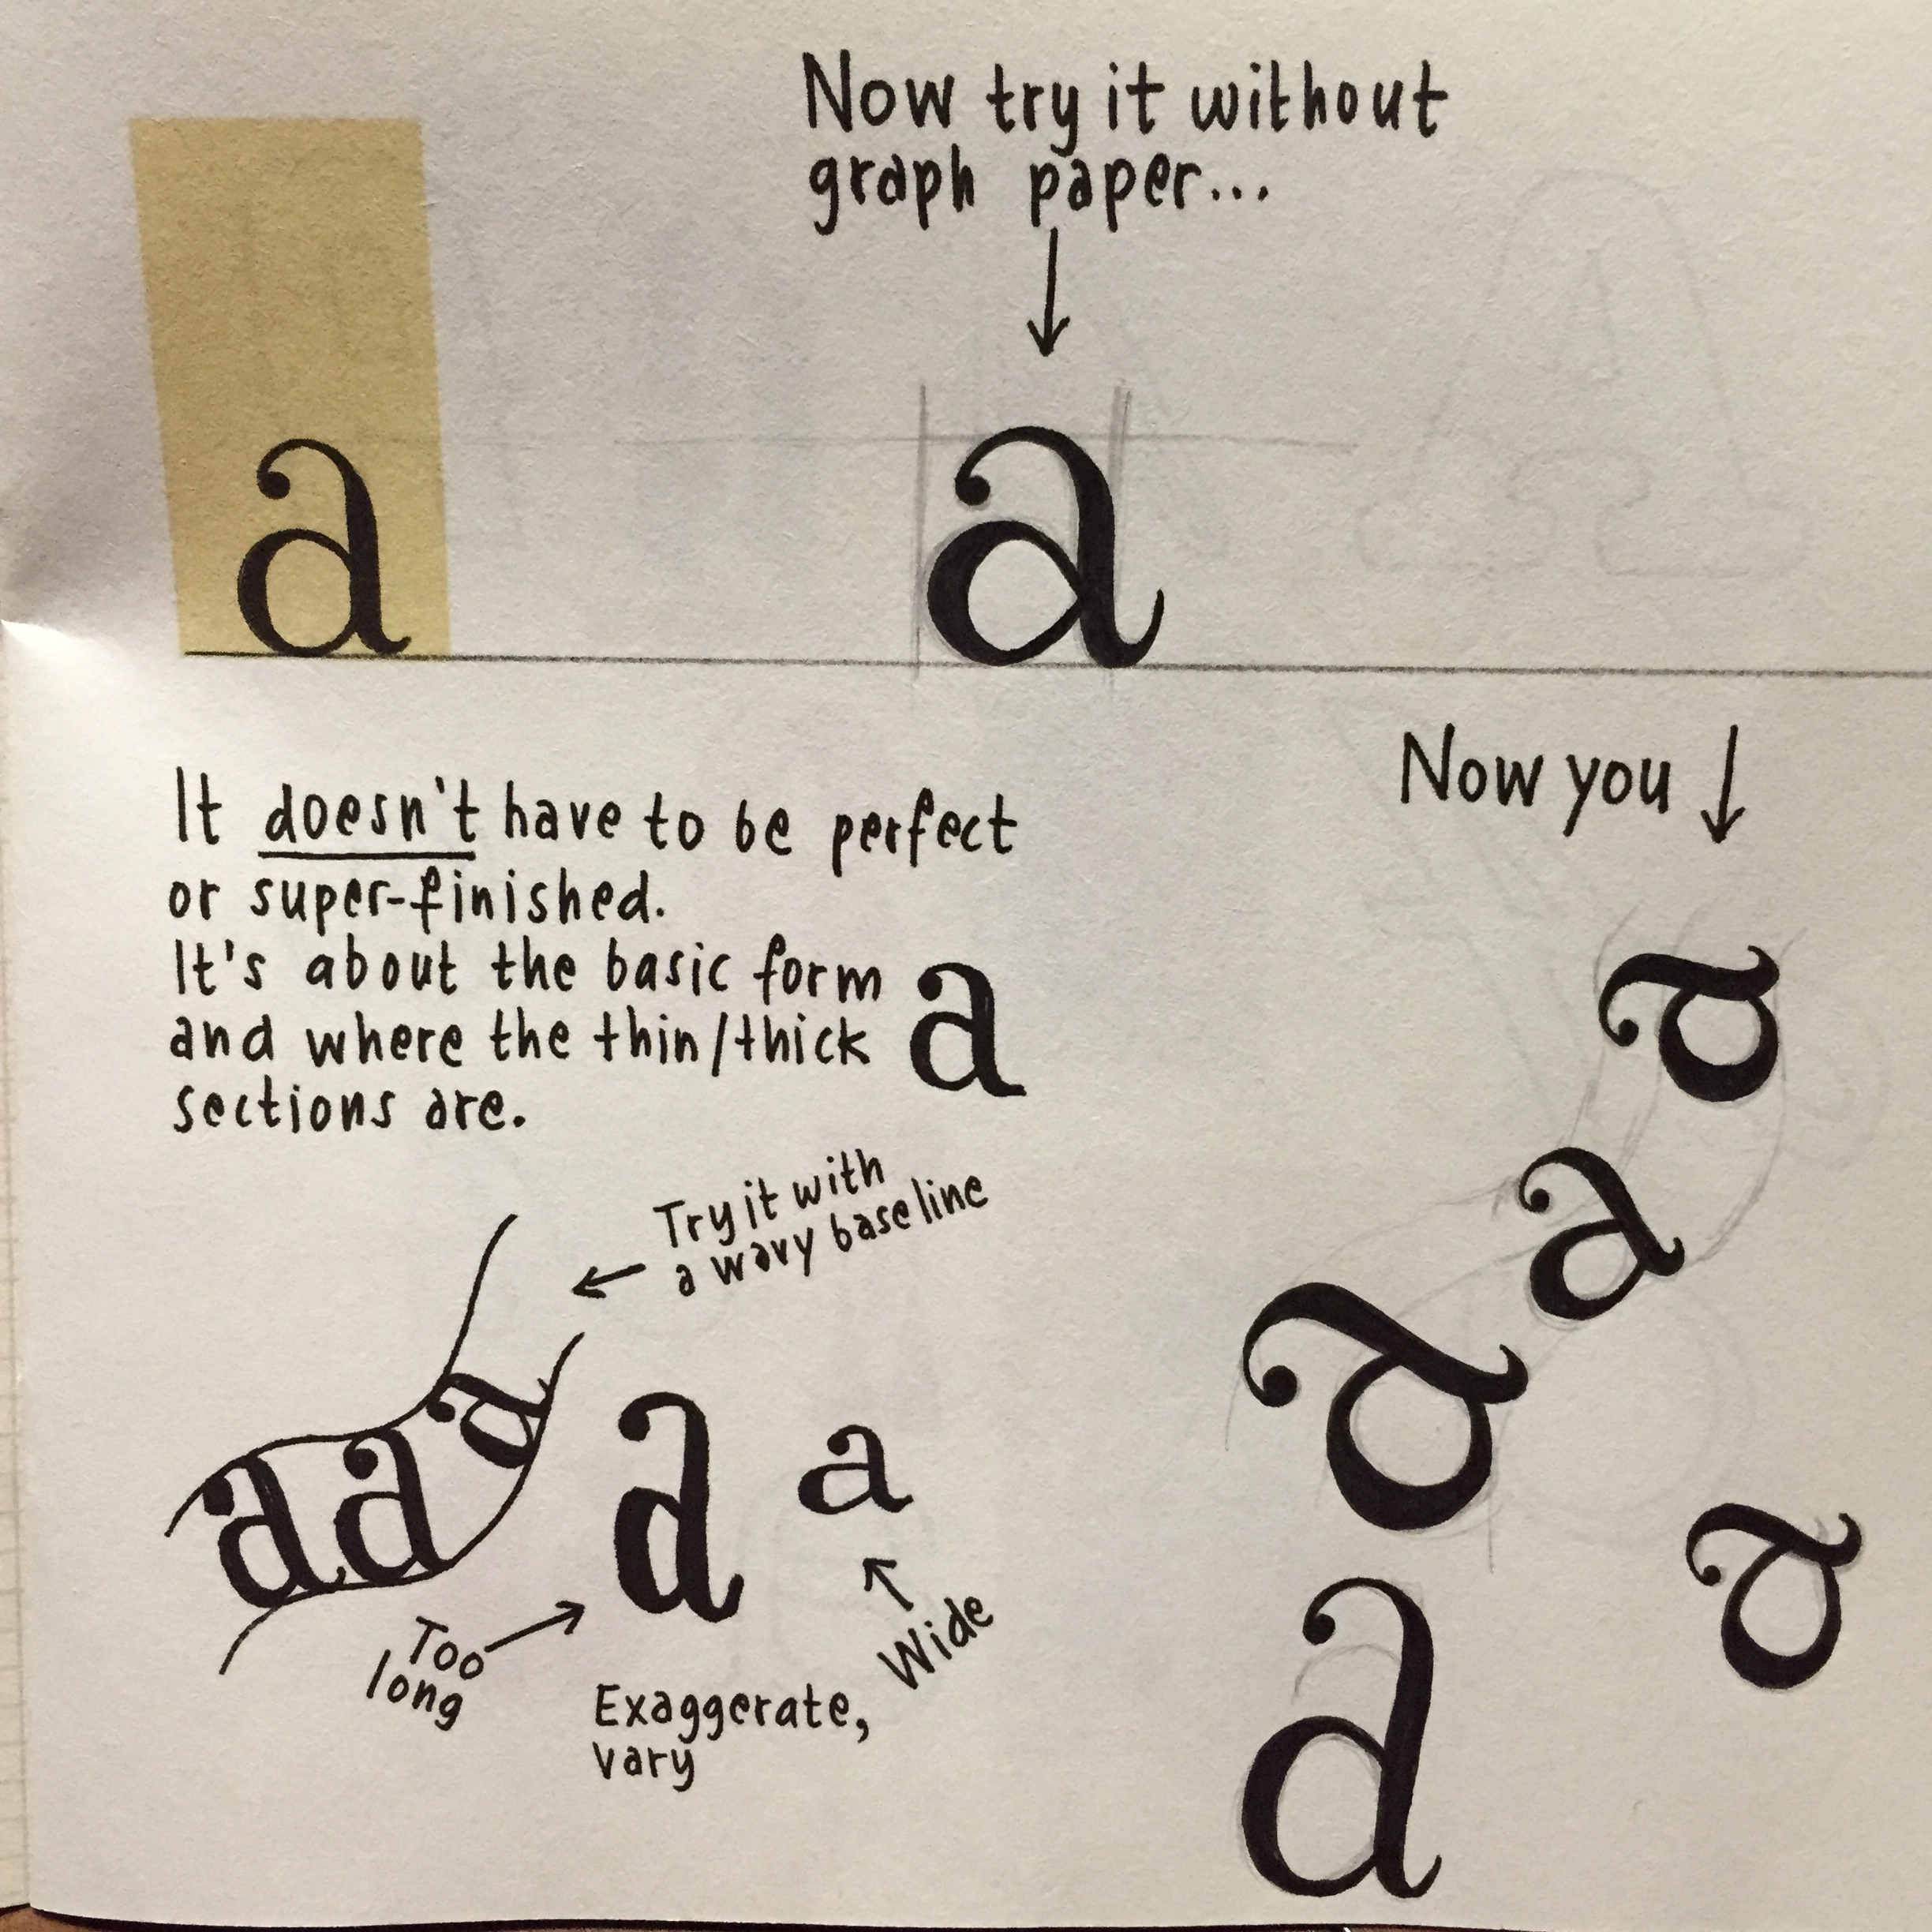 Now try it without
graph paper...
a
a
It doesn't have to be perfect
or super-finished.
It's about the basic form
and where the thin/thick
sections are.
a
Now you
a
a
a
a
a
Try it with
a wavy baseline
a a a
a
a
Too
long
Wide
Exaggerate,
vary